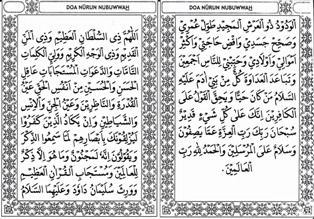 DOA NURUN NUBUWWAH
اَللّٰهُمَّ ذِي السُّلْطَانِ الْعَظِيْمِ وَذِي الْمَنِّ
الْقَدِيْمِ وَذِي الْوَجْهِ الْكَرِيْمِ وَوَلِيِّ الْكَلِمَاتِ
التَّآمَّاتِ وَالدَّعَوَاتِ الْمُسْتَجَابَاتِ عَاقِلِ
الْحَسَنِ وَالْحُسَيْنِ مِنْ اَنْفُسِ الْحَقِّ عَيْنِ
الْقُدْرَةِ وَالنَّاظِرِيْنَ وَعَيْنِ الْجِنِّ وَالْاِنْسِ
وَالشَّيَاطِيْنِ وَاِنْ يَكَادُ الَّذِيْنَ كَفَرُوْا
لَيُزْلِقُوْنَكَ بِاَبْصَارِهِمْ لَمَّا سَمِعُوا الذِّكْرَ
وَيَقُوْلُوْنَ اِنَّهُ لَمَجْنُوْنٌ وَمَا هُوَ اِلَّا ذِكْرٌ
لِلْعَالَمِيْنَ وَمُسْتَجَابُ الْقُرْاٰنِ الْعَظِيْمِ
وَوَرِثَ سُلَيْمَانُ دَاوُدَ وَعَلَيْهِمَا السَّلَامُ
DOA NURUN NUBUWWAH
الْوَدُوْدُ ذُو الْعَرْشِ الْمَجِيْدِ طَوِّلْ عُمْرِيْ
وَصَحِّحْ جَسَدِيْ وَاقْضِ حَاجَتِيْ وَاَكْثِرْ
اَمْوَالِيْ وَاَوْلَادِيْ وَحَبِّبْنِيْ لِلنَّاسِ اَجْمَعِيْنَ
وَتَبَاعَدِ الْعَدَاوَةَ كُلَّهَا مِنْ بَنِيْ اٰدَمَ عَلَيْهِ
السَّلَامُ مَنْ كَانَ حَيًّا وَيَحِقَّ الْقَوْلُ عَلَى
الْكَافِرِيْنَ اِنَّكَ عَلَى كُلِّ شَيْءٍ قَدِيْرٌ
سُبْحَانَ رَبِّكَ رَبِّ الْعِزَّةِ عَمَّا يَصِفُوْنَ
وَسَلَامٌ عَلَى الْمُرْسَلِيْنَ وَالْحَمْدُ لِلّٰهِ رَبِّ
الْعَالَمِيْنَ.